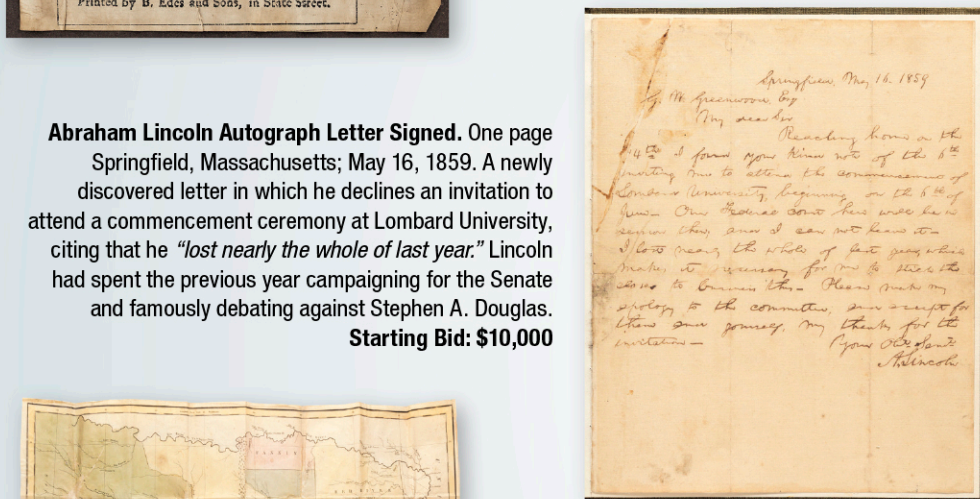 Printed by B. Edes and Sons, in State Street.
Abraham Lincoln Autograph Letter Signed. One page
Springfield, Massachusetts; May 16, 1859. A newly
discovered letter in which he declines an invitation to
attend a commencement ceremony at Lombard University,
citing that he “lost nearly the whole of last year.” Lincoln
had spent the previous year campaigning for the Senate
and famously debating against Stephen A. Douglas.
Starting Bid: $10,000
Springfield, May 16, 1859
M. Greenwood, Esq
My dear Sir
Reaching home on the
14th I found your kind note of the 6th
inviting me to attend the commencement of
Lombard University, beginning on the 6th of
June. Our Federal court here will be in
session then, and I can not leave it—
I lost nearly the whole of last year, which
makes it necessary for me to stick the
closer to business this— Please make my
apology to the committee, and accept for
them and yourself, my thanks for the
invitation—
Your Obt. Servt.
A. Lincoln